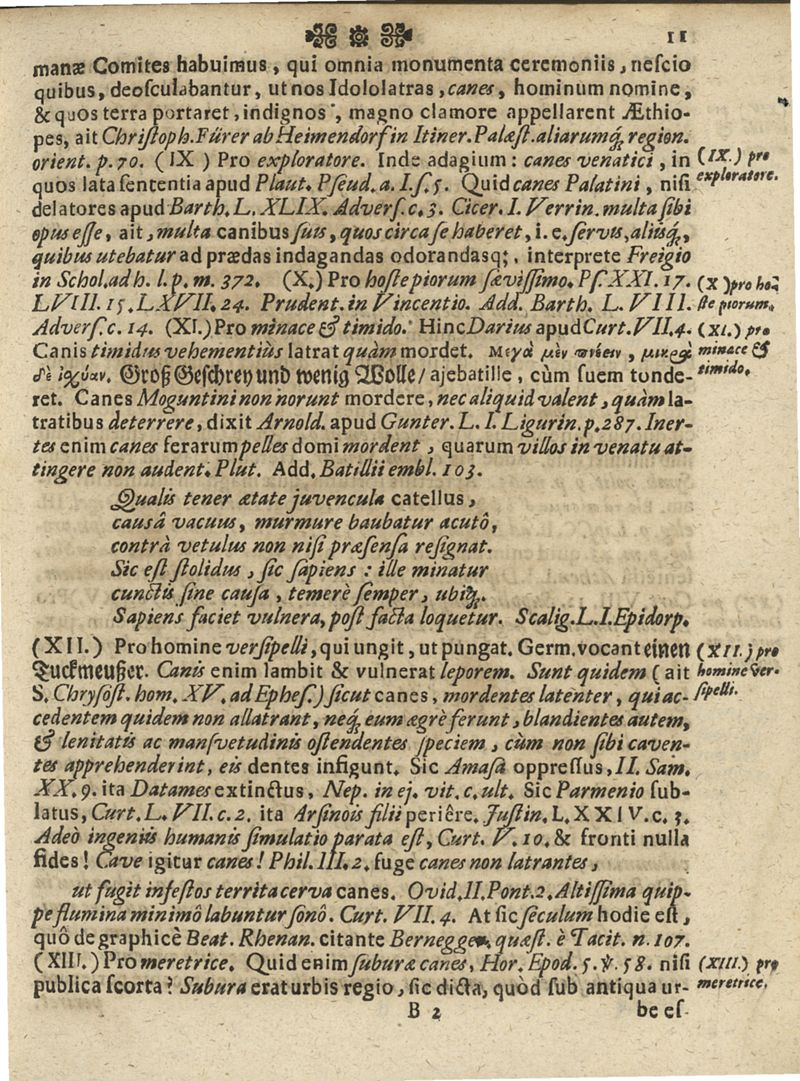 11
manæ Comites habuimus, qui omnia monumenta ceremoniis, neſcio
quibus, deoſculabantur, ut nos Idololatras, canes, hominum nomine,
& quos terra portaret, indignos, magno clamore appellarent Æthio-
pes, ait Chriſtoph. Fürer ab Heimendorf in Itiner. Palæſt. aliarumq́; region.
orient. p. 70. (IX) Pro exploratore. Inde adagium: canes venatici, in
(IX.) pro exploratore.
quos lata ſententia apud Plaut. Pſeud. a. I. ſ. 5. Quid canes Palatini, niſi
delatores apud Barth. L. XLIX. Adverſ. c. 3. Cicer. I. Verrin. multa ſibi
opus eſſe, ait, multa canibus ſuis, quos circa ſe haberet, i. e. ſervis, aliisq́;,
quibus utebatur ad prædas indagandas odorandasq;, interprete Freigio
in Schol. ad h. l. p. m. 372. (X.) Pro hoſte piorum ſæviſſimo. Pſ. XXI. 17.
(X) pro ho-
LVIII. 15. LXVII. 24. Prudent. in Vincentio. Add. Barth. L. VIII.
ſte piorum.
Adverſ. c. 14. (XI.) Pro minace & timido. Hinc Darius apud Curt. VII. 4.
(XI.) pro
Canis timidus vehementiùs latrat quàm mordet. Μεγὰ μὲν πνέειν, μικρὰ
minace &
δὲ ἰχύαν. Groß Geſchrey und wenig Wolle/ ajebat ille, cùm ſuem tonde-
timido.
ret. Canes Moguntini non norunt mordere, nec aliquid valent, quàm la-
tratibus deterrere, dixit Arnold. apud Gunter. L. I. Ligurin. p. 287. Iner-
tes enim canes ferarum pelles domi mordent, quarum villos in venatu at-
tingere non audent. Plut. Add. Batillii embl. 103.
Qualis tener ætate juvencula catellus,
causâ vacuus, murmure baubatur acutô,
contrà vetulus non niſi præſenſa reſignat.
Sic eſt ſtolidus, ſic ſapiens: ille minatur
cunctis ſine cauſa, temerè ſemper, ubiq́;.
Sapiens faciet vulnera, poſt facta loquetur. Scalig. L. I. Epidorp.
(XII.) Pro homine verſipelli, qui ungit, ut pungat. Germ. vocant einen
(XII.) pro
Tuckmeuſzer. Canis enim lambit & vulnerat leporem. Sunt quidem (ait
homine ver-
S. Chryſoſt. hom. XV. ad Epheſ.) ſicut canes, mordentes latenter, qui ac-
ſipelli.
cedentem quidem non allatrant, neq́; eum ægrè ferunt, blandientes autem,
& lenitatis ac manſvetudinis oſtendentes ſpeciem, cùm non ſibi caven-
tes apprehenderint, eis dentes infigunt. Sic Amaſa oppreſſus, II. Sam.
XX. 9. ita Datames extinctus, Nep. in ej. vit. c. ult. Sic Parmenio ſub-
latus, Curt. L. VII. c. 2. ita Arſinois filii periêre. Juſtin. L. XXIV. c. 3.
Adeò ingeniis humanis ſimulatio parata eſt, Curt. V. 10. & fronti nulla
fides! Cave igitur canes! Phil. III. 2. fuge canes non latrantes,
ut fugit infeſtos territa cerva canes. Ovid. II. Pont. 2. Altiſſima quip-
pe flumina minimô labuntur ſonô. Curt. VII. 4. At ſic ſeculum hodie eſt,
quô de graphicè Beat. Rhenan. citante Bernegger. quæſt. è Tacit. n. 107.
(XIII.) Pro meretrice. Quid enim ſuburæ canes, Hor. Epod. 5. ℣. 58. niſi
(XIII.) pro
publica ſcorta? Subura erat urbis regio, ſic dicta, quòd ſub antiqua ur-
meretrice.
B 2
be eſ-